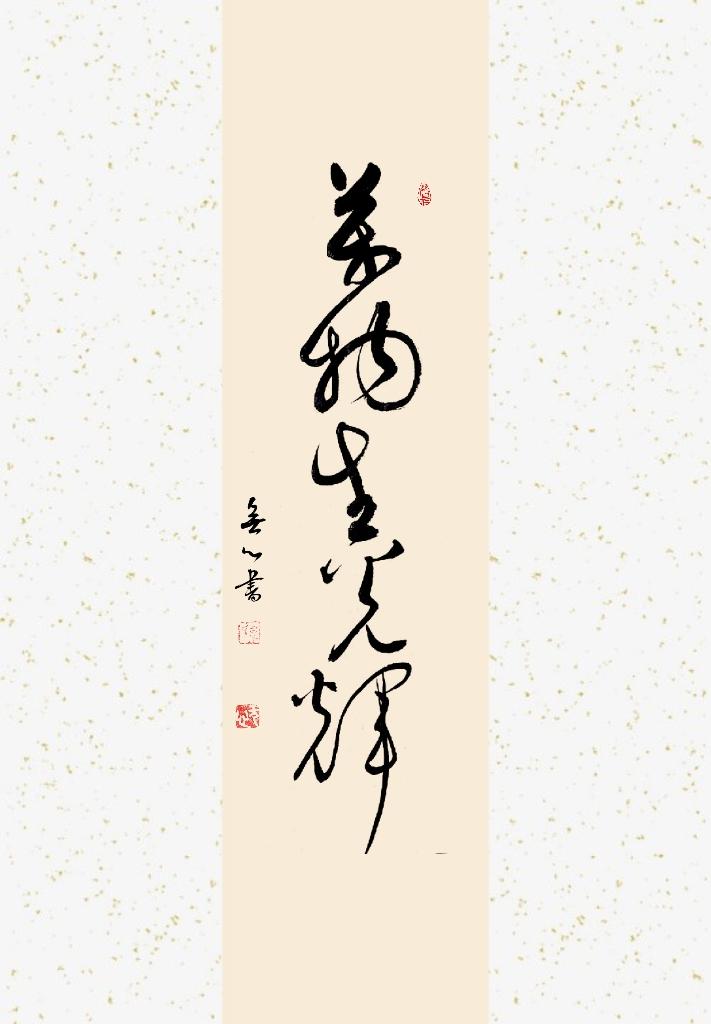 萬物生光輝
無心書